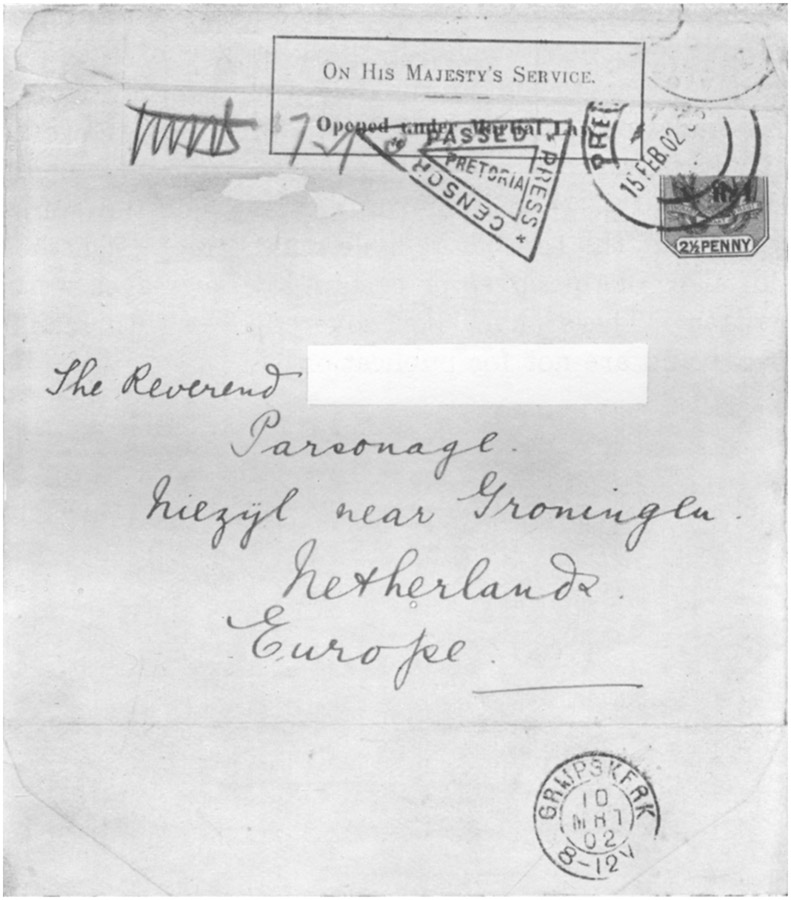 ON HIS MAJESTY'S SERVICE.
Opened under Martial Law
PASSED
* PRESS *
CENSOR
PRETORIA
PRE
15 FEB. 02
2½ PENNY
The Reverend
Parsonage.
Niezijl near Groningen.
Netherlands.
Europe.
GRIJPSKERK
10
MRT
02
8-12V